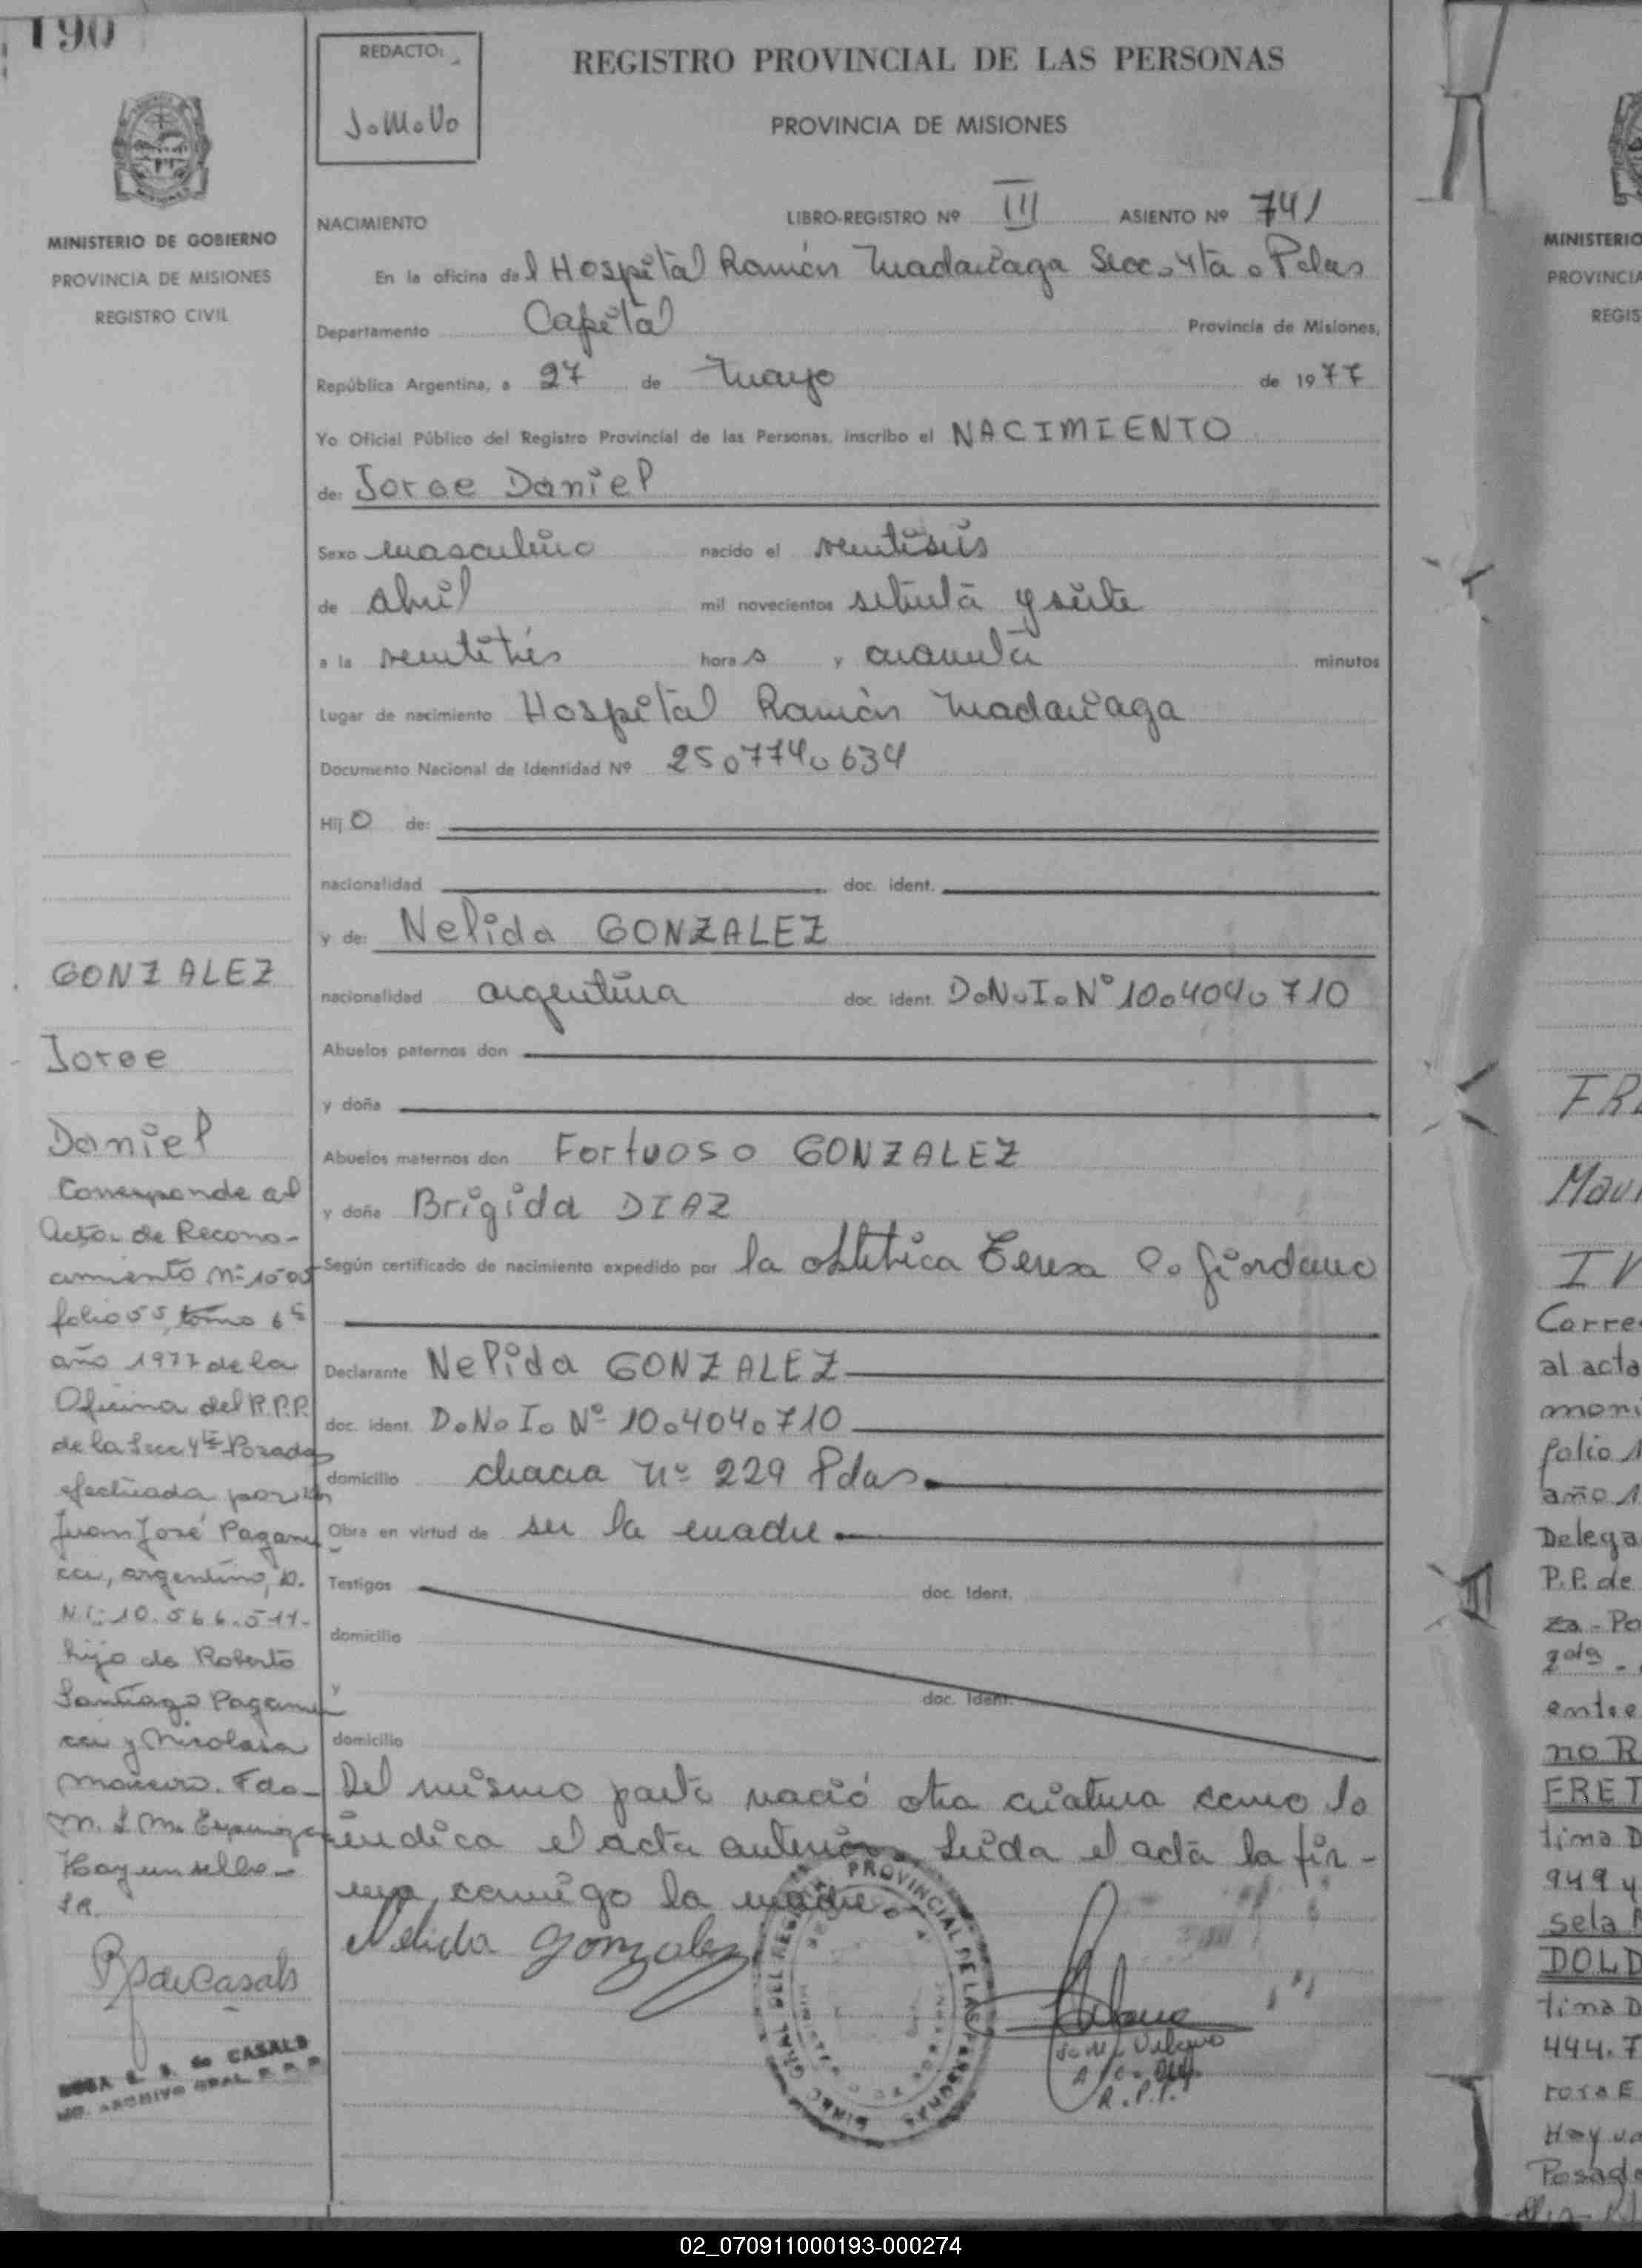 190
MINISTERIO DE GOBIERNO
PROVINCIA DE MISIONES
REGISTRO CIVIL
REDACTO:
J.M.V.
REGISTRO PROVINCIAL DE LAS PERSONAS
PROVINCIA DE MISIONES
NACIMIENTO LIBRO-REGISTRO Nº III ASIENTO Nº 741
En la oficina del Hospital Ramón Madariaga Secc. 4ta. Pdas
Departamento Capital Provincia de Misiones,
República Argentina, a 27 de Mayo de 1977
Yo Oficial Público del Registro Provincial de las Personas, inscribo el NACIMIENTO
de: Jorge Daniel
Sexo masculino nacido el veintiseis
de abril mil novecientos setenta y siete
a la veintitrés horas y cuarenta minutos
Lugar de nacimiento Hospital Ramón Madariaga
Documento Nacional de Identidad Nº 25.774.634
Hijo de:
nacionalidad doc. ident.
y de: Nelida GONZALEZ
nacionalidad argentina doc. ident. D.N.I. Nº 10.404.710
Abuelos paternos don
y doña
Abuelos maternos don Fortuoso GONZALEZ
y doña Brigida DIAZ
Según certificado de nacimiento expedido por la obstetrica Teresa C. Giordano
Declarante Nelida GONZALEZ
doc. ident. D.N.I. Nº 10.404.710
domicilio chacra Nº 229 Pdas.
Obra en virtud de ser la madre.
Testigos doc. Ident.
domicilio
y doc. Ident.
domicilio
Del mismo parto nació otra criatura como lo
indica el acta anterior. Leida el acta la fir-
ma conmigo la madre
Nelida Gonzalez
R.P.P.
GONZALEZ
Jorge
Daniel
Corresponde al
Acta de Recono-
cimiento Nº 1505
folio 55 tomo 6º
año 1977 de la
Oficina del R.P.P.
de la Secc 4ta Posadas
efectuada por
Juan José Pagani
cci, argentino, D.
N.I. 10.566.511-
hijo de Roberto
Santiago Pagani
cci y Nicolasa
Fdo-
M. L. M.
Hay un sello-
de CASALS
ARCHIVO GRAL. R. P. P.
MINISTERIO
PROVINCIA
REGIS
FRE
Mau
Corre
al acta
moni
folio 1
año 1
Delega
P.P. de
za - Po
2da -
entre
no R
FRET
tima D
949 y
sela
DOLD
tima D
444.7
rosa E
Hay un
Posada
02_070911000193-000274